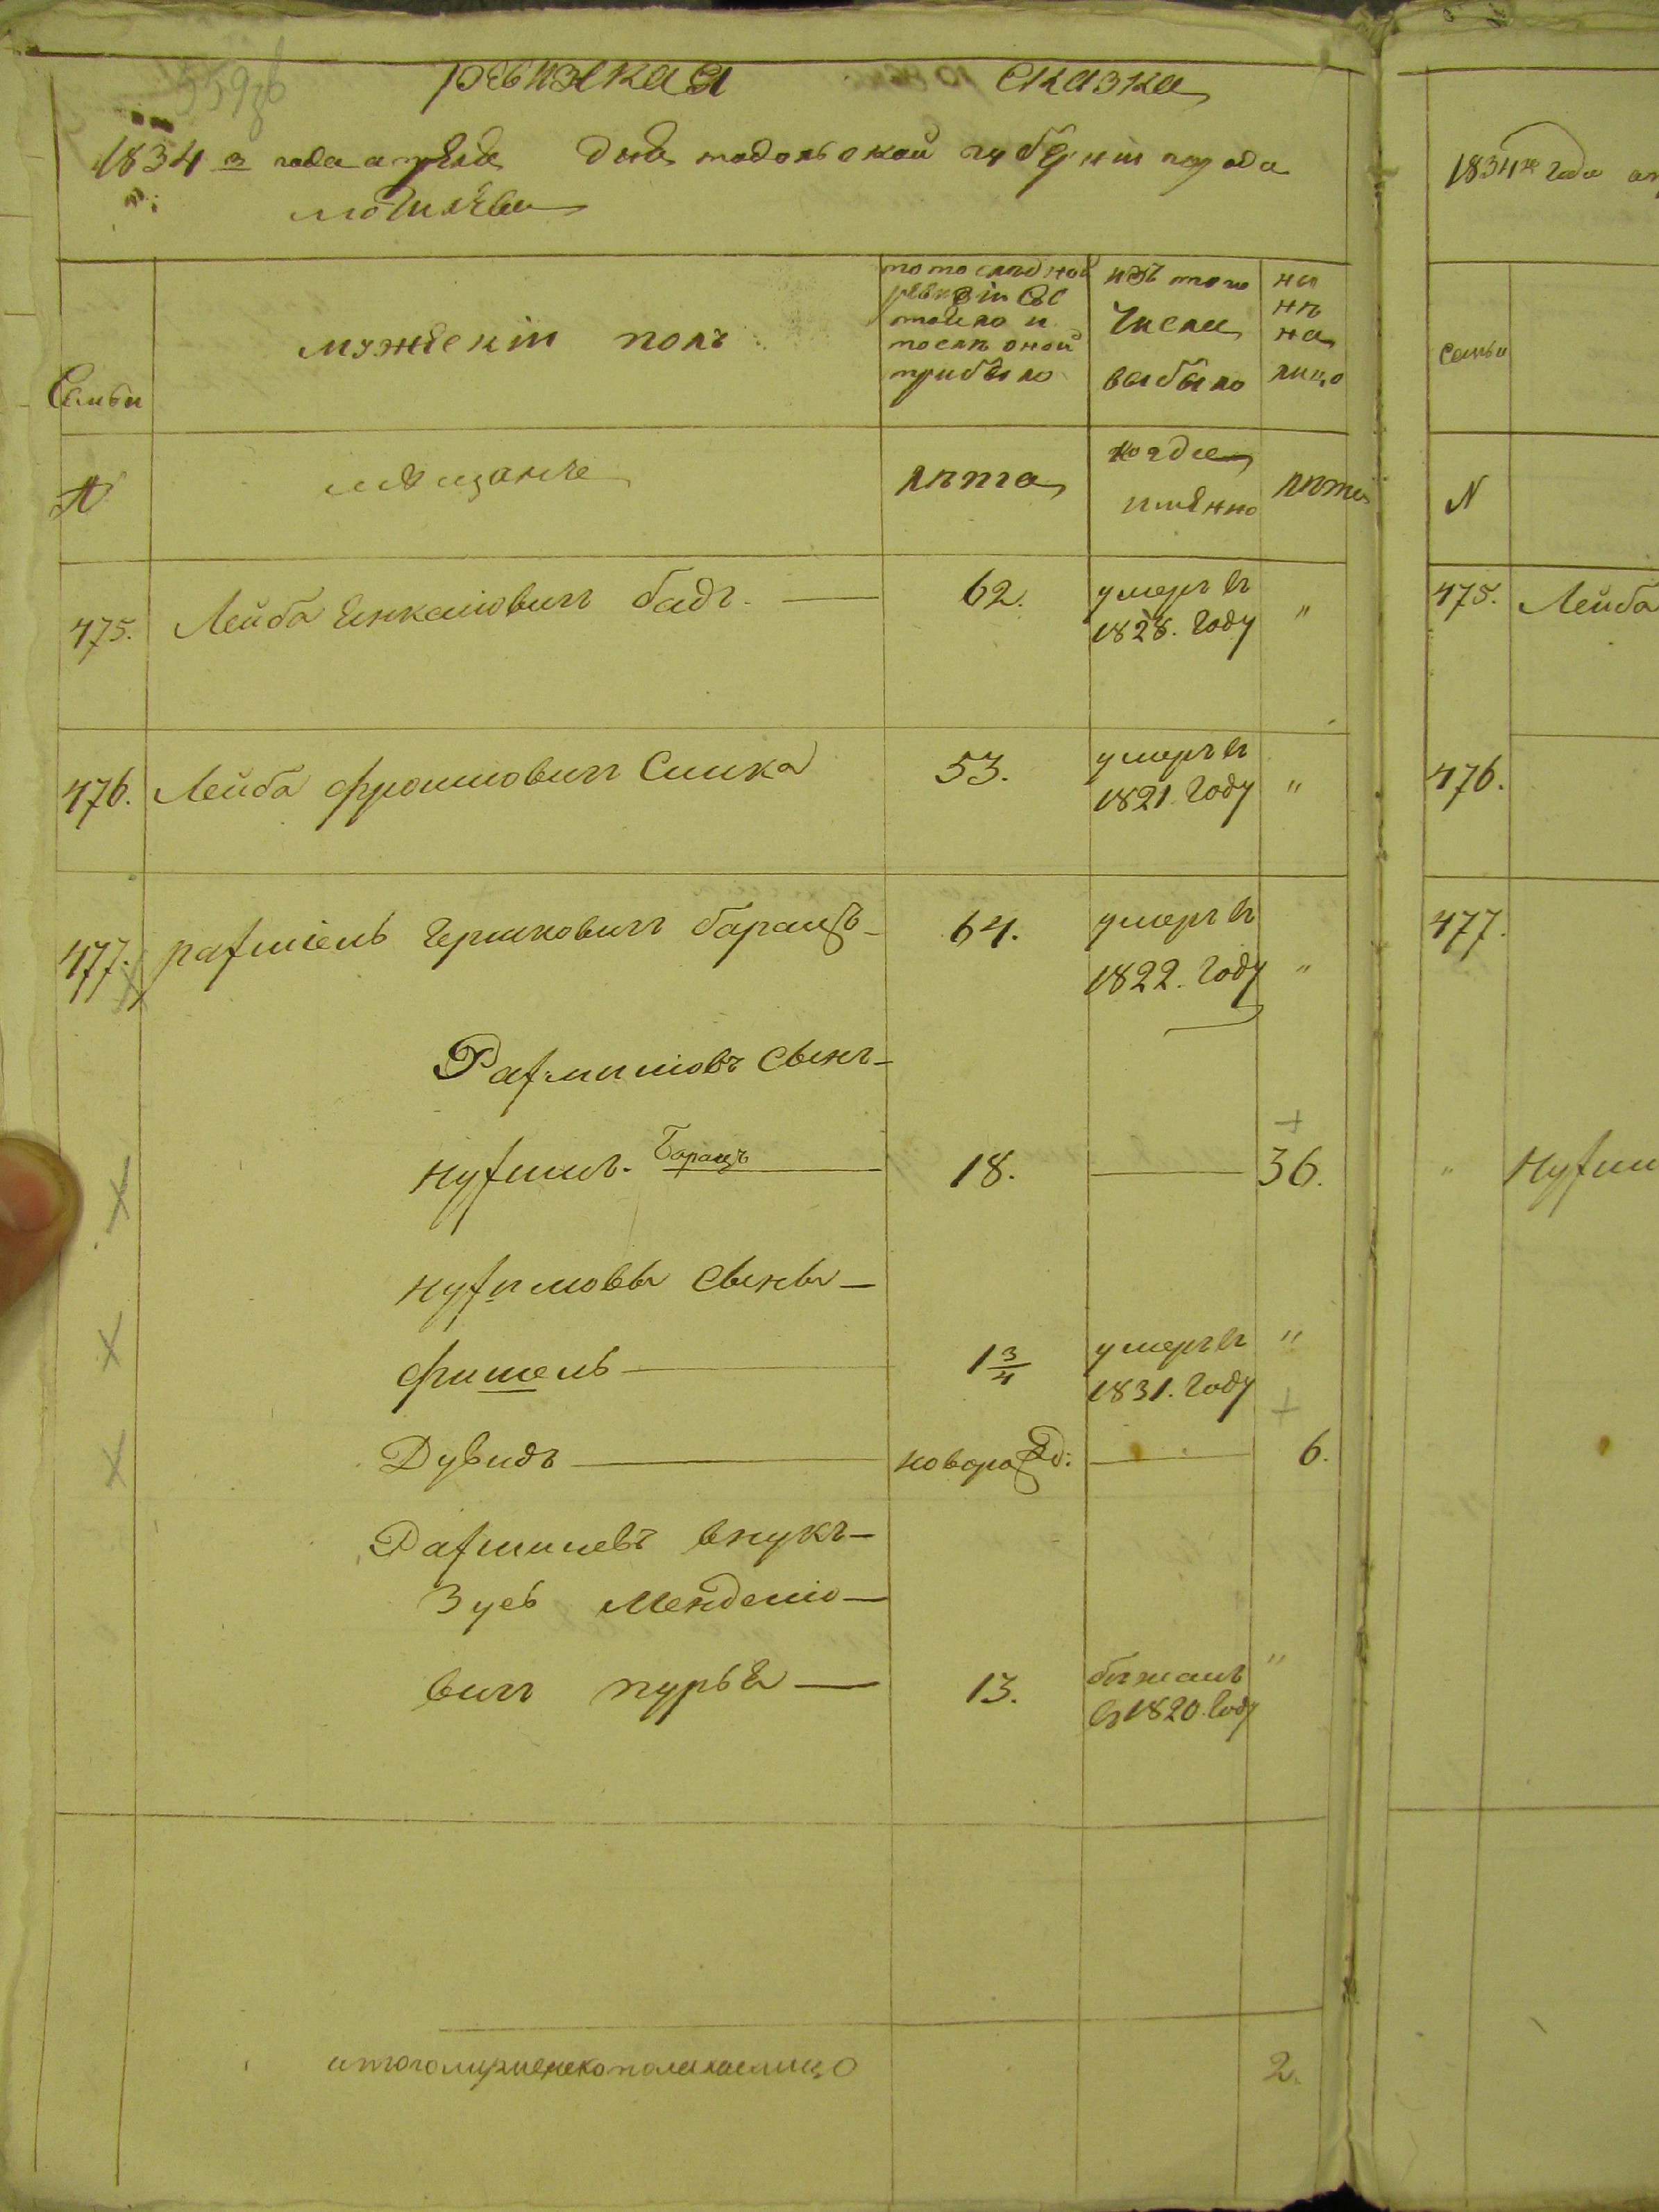 ревизская сказка
1834 го года апреля дня подольской губерніи города
могилева
Семьи
мужескій полъ
по последной
ревизіи сос
тояло и
после оной
прибыло
изъ того
числа
выбыло
ны
не
на
лицо
N
мещане
лета
когда
имянно
лета
475. Лейба Янкеліовичъ бадъ. 62. умеръ въ
1828. году "
476. Лейба Фроимовичъ Симка 53. умеръ въ
1821. году "
477. рафміель Гершковичъ баранъ 64. умеръ въ
1822. году "
Рафмиловъ сынъ
нухимъ. Баранъ 18. 36.
нухимовы сыны
фишель 1 3/4 умеръ въ "
1831. году
Дувидъ новорожд: 6.
внукъ
Зусь Менделіо
вичъ 13. бежалъ "
въ 1820. году
итого мужеска пола налицо 2.
1834 го года ап
Семьи
N
475. Лейба
476.
477.
" Нухим